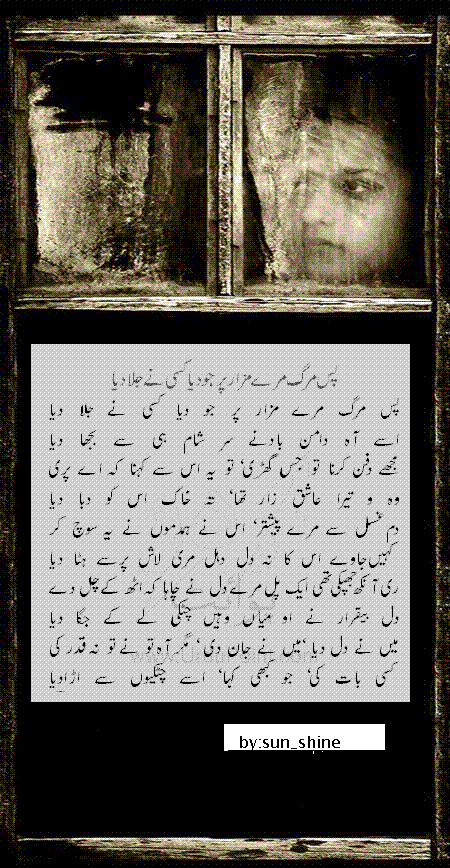 پس مرگ مرے مزار پر جو دیا کسی نے جلا دیا
پس مرگ مرے مزار پر جو دیا کسی نے جلا دیا
اسے آہ دامن بادنے سر شام ہی سے بجھا دیا
مجھے دفن کرنا تو جس گھڑی، تو یہ اس سے کہنا کہ اے پری
وہ و تیرا عاشق زار تھا، تہ خاک اس کو دبا دیا
دم غسل سے مرے پیشتر، اس نے ہمدموں نے یہ سوچ کر
کہیں جاوے اس کا نہ دل دہل مری لاش پرسے ہٹا دیا
ری آنکھ جھپکی تھی ایک پل مرے دل نے چاہا کہ اٹھ کے چل دے
دل بیقرار نے او میاں وہیں چٹکی لے کے جگا دیا
میں نے دل دیا، میں نے جان دی، مگر آہ تو نے تو نہ قدر کی
کسی بات کی، جو بھی کہا، اسے چٹکیوں سے اڑادیا
by:sun_shine